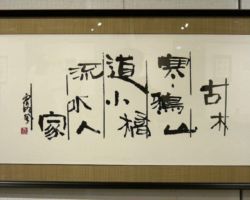 古木
寒鴉山
道小橋
流水人
家